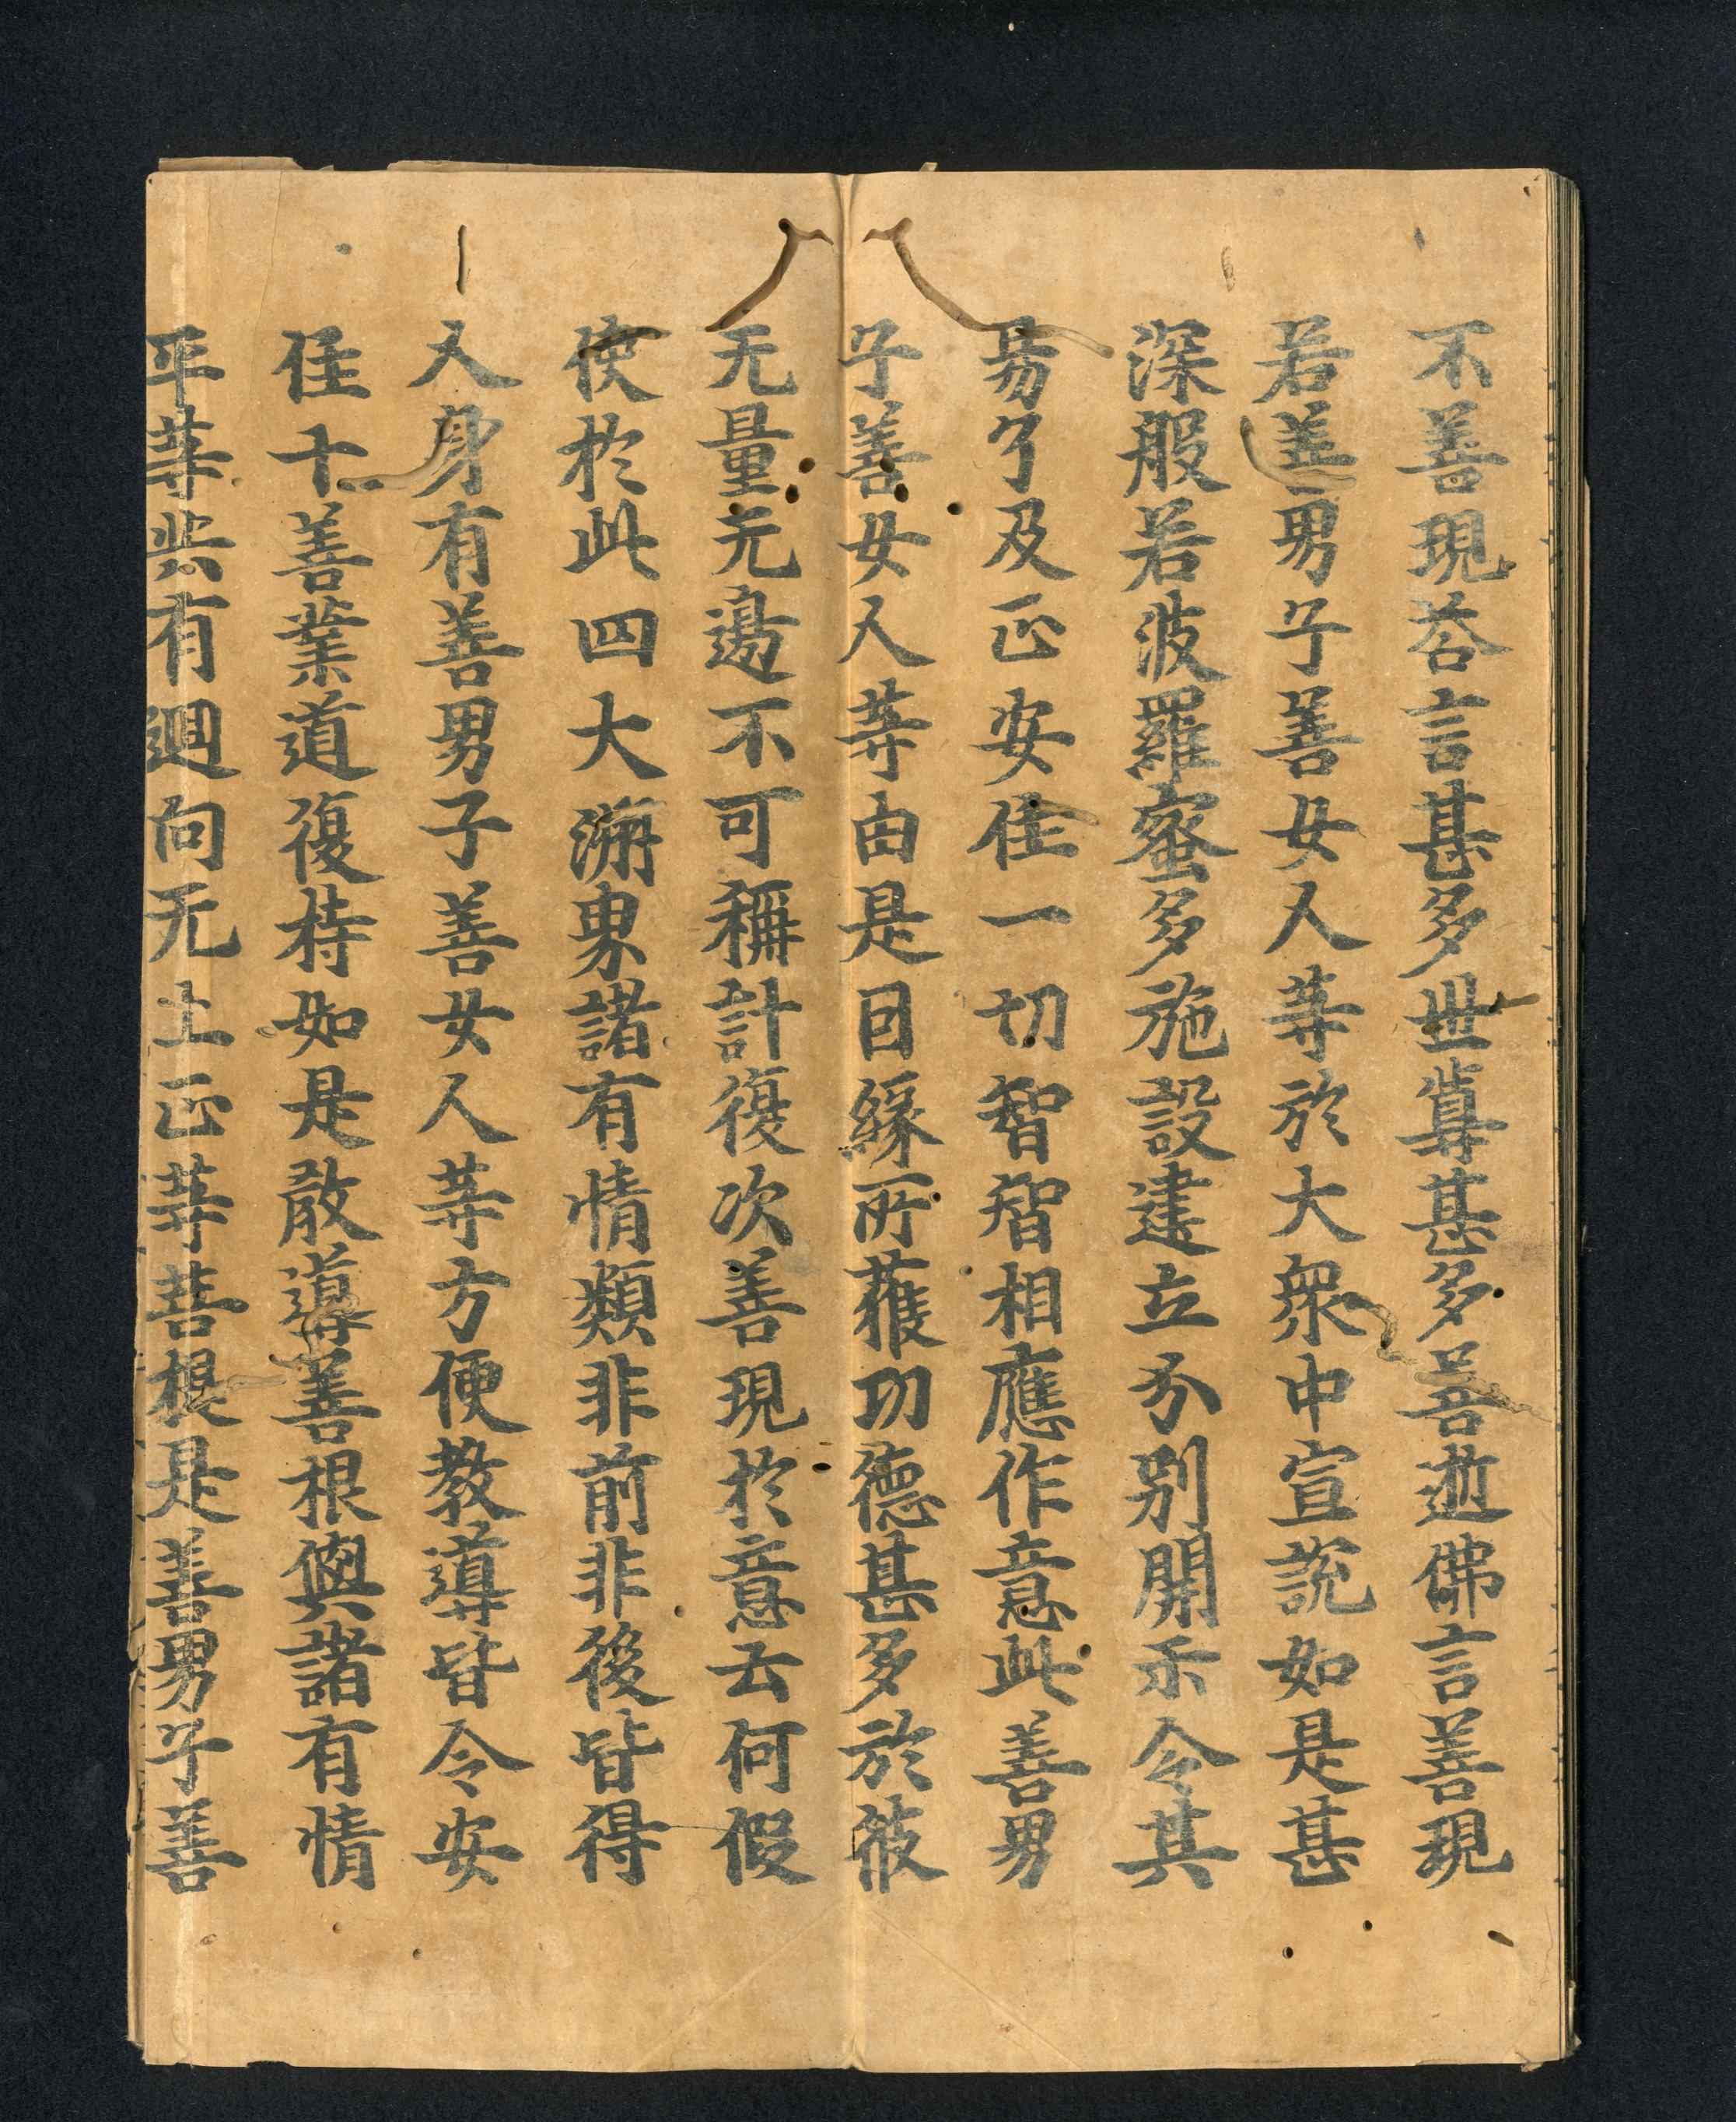 不善現荅言甚多世尊甚多善逝佛言善現
若善男子善女人等於大衆中宣說如是甚
深般若波羅蜜多施設建立分別開示令其
易了及正安住一切智智相應作意此善男
子善女人等由是因緣所獲功德甚多於彼
无量无邊不可稱計復次善現於意云何假
使於此四大洲界諸有情類非前非後皆得
人身有善男子善女人等方便教導皆令安
住十善業道復持如是教導善根與諸有情
平等共有迴向无上正等菩根是善男子善